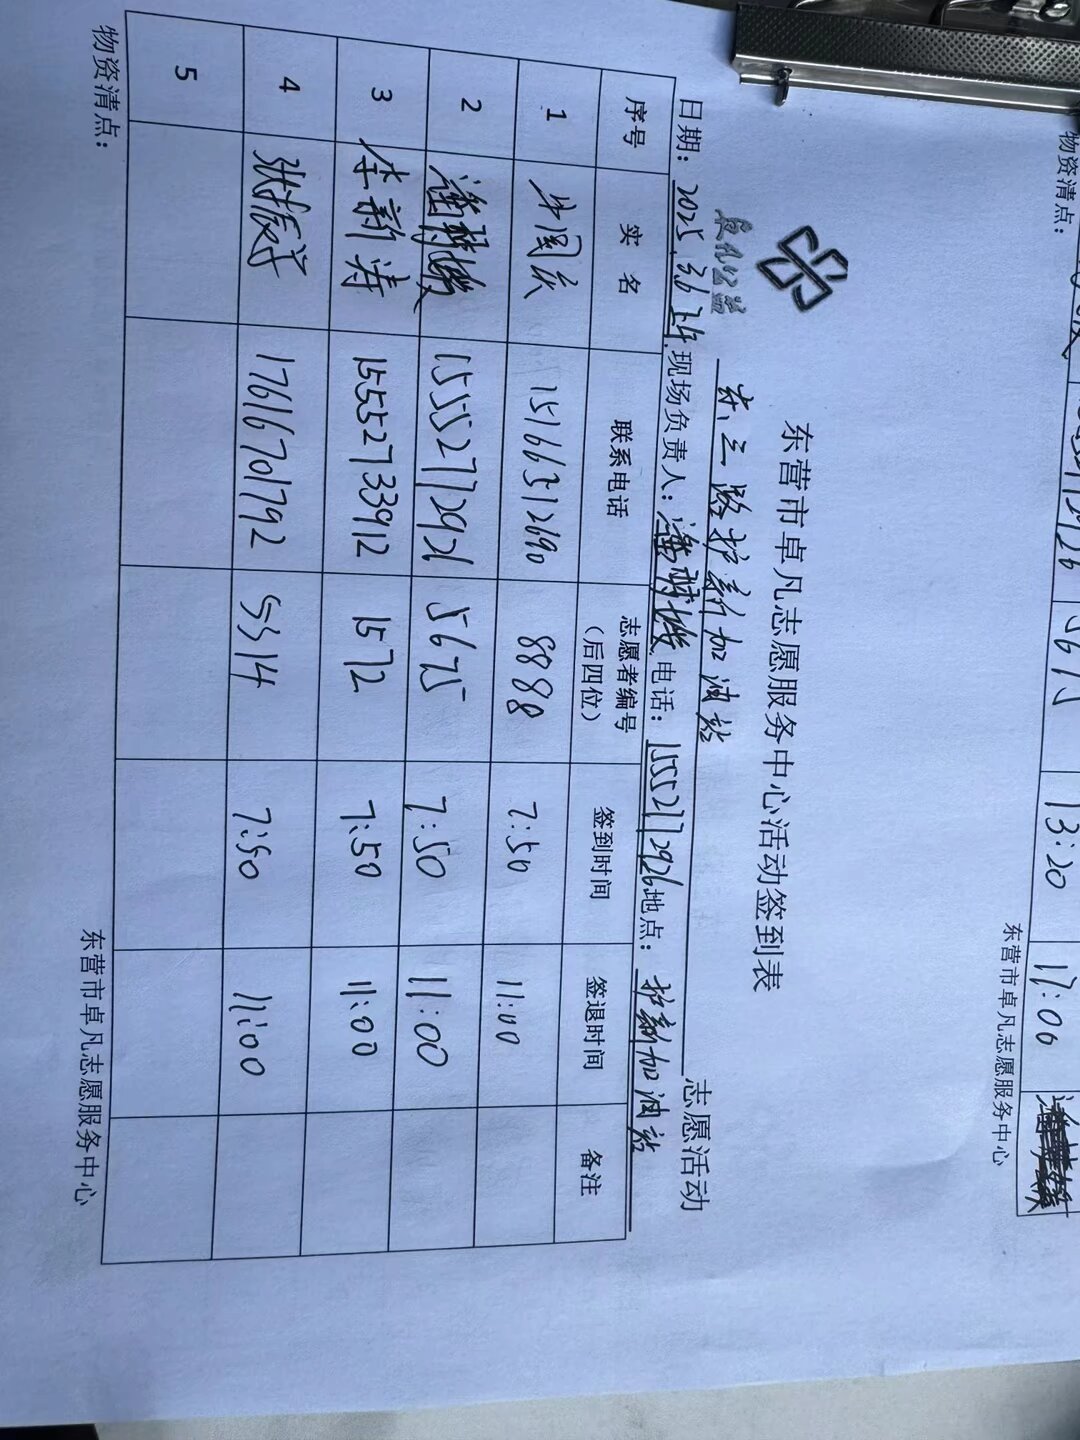 东营市卓凡志愿服务中心活动签到表
东三路护新加油站 志愿活动
日期：2025.3.6上午 现场负责人： 电话：15552772926 地点：护新加油站
序号 实名 联系电话 志愿者编号（后四位） 签到时间 签退时间 备注
1 15166312690 8888 7:50 11:00
2 15552772926 5675 7:50 11:00
3 李新涛 15552733912 1572 7:50 11:00
4 17616701792 5314 7:50 11:00
5
物资清点： 东营市卓凡志愿服务中心
物资清点：
5675 13:20 17:06
东营市卓凡志愿服务中心